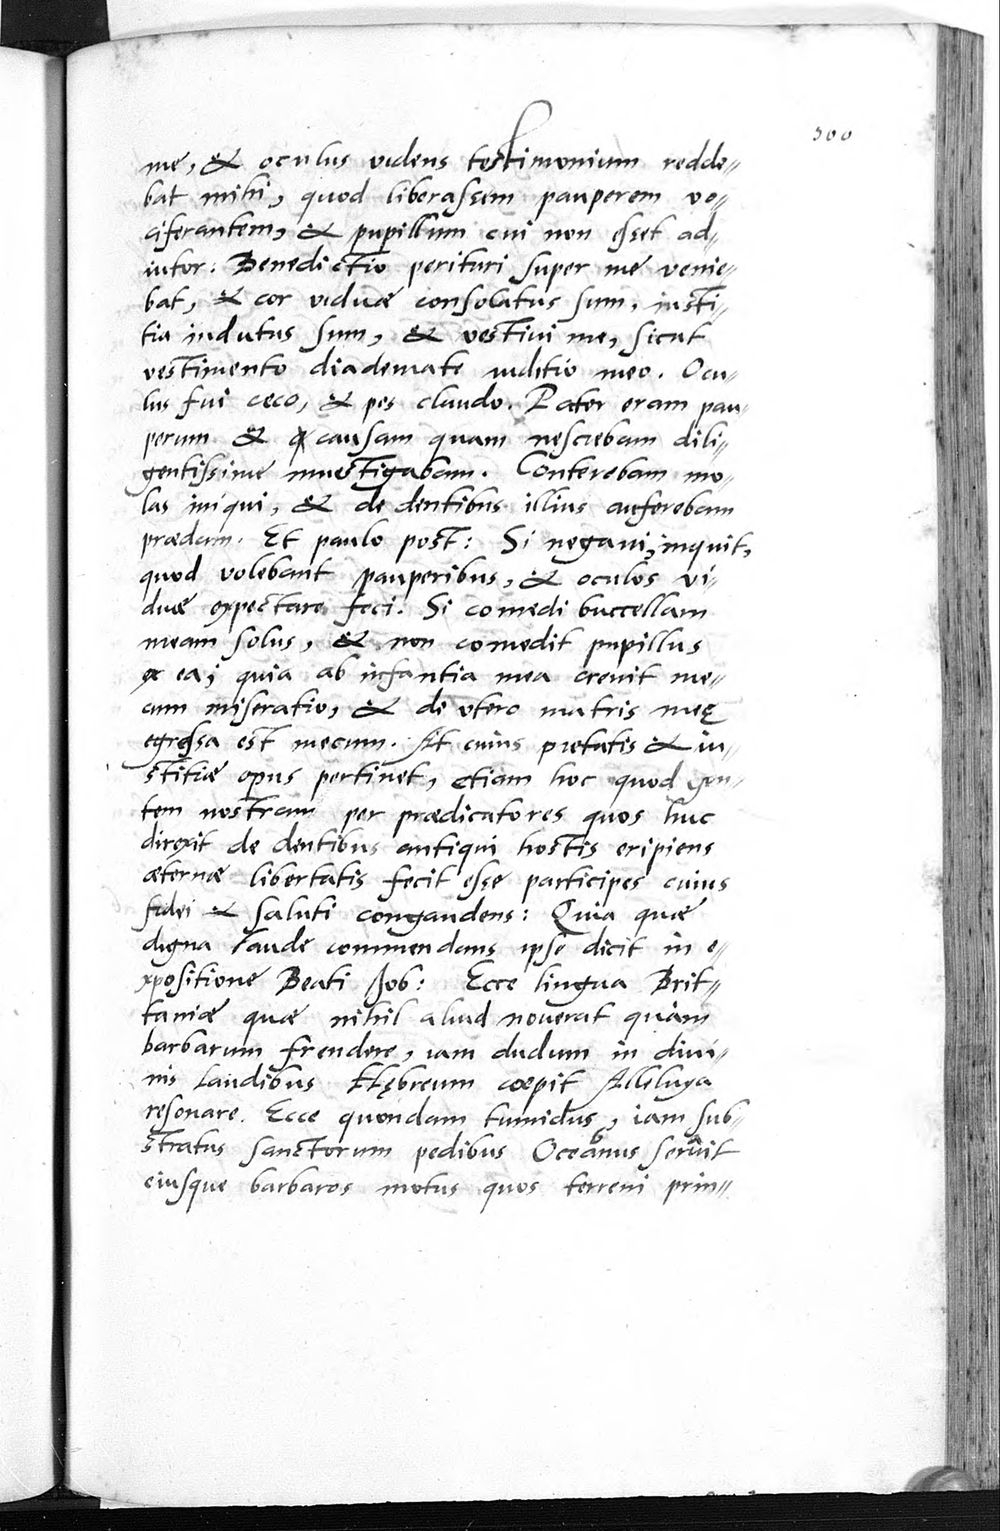 300
me, & oculus videns testimonium redde„
bat mihi, quod liberassem pauperem vo„
ciferantem, & pupillum cui non esset ad„
iutor: Benedictio perituri super me venie„
bat, & cor viduæ consolatus sum, iusti„
tia indutus sum, & vestivi me, sicut
vestimento diademate iuditio meo. Ocu„
lus fui ceco, & pes claudo. Pater eram pau„
perum & causam quam nesciebam dili„
gentissime investigabam. Conterebam mo„
las iniqui, & de dentibus illius auferebam
prædam. Et paulo post: Si negavi, inquit,
quod volebant pauperibus, & oculos vi„
duæ expectare feci. Si comedi buccellam
meam solus, & non comedit pupillus
ex ea; quia ab infantia mea crevit me„
cum miseratio, & de utero matris meę
egressa est mecum. At cuius pietatis & iu„
stitiæ opus pertinet, etiam hoc quod gen„
tem nostram per prædicatores quos huc
direxit de dentibus antiqui hostis eripiens
æternæ libertatis fecit esse participes cuius
fidei & saluti congaudens: Quia quæ
digna laude commendans ipse dicit in e„
xpositione Beati Job: Ecce lingua Brit„
taniæ quæ nihil aliud noverat quàm
barbarum frendere, iam dudum in divi„
nis laudibus Hębreum cœpit Alleluya
resonare. Ecce quondam tumidus, iam sub„
stratus sanctorum pedibus Oceanus servit
eiusque barbaros motus quos terreni prin„